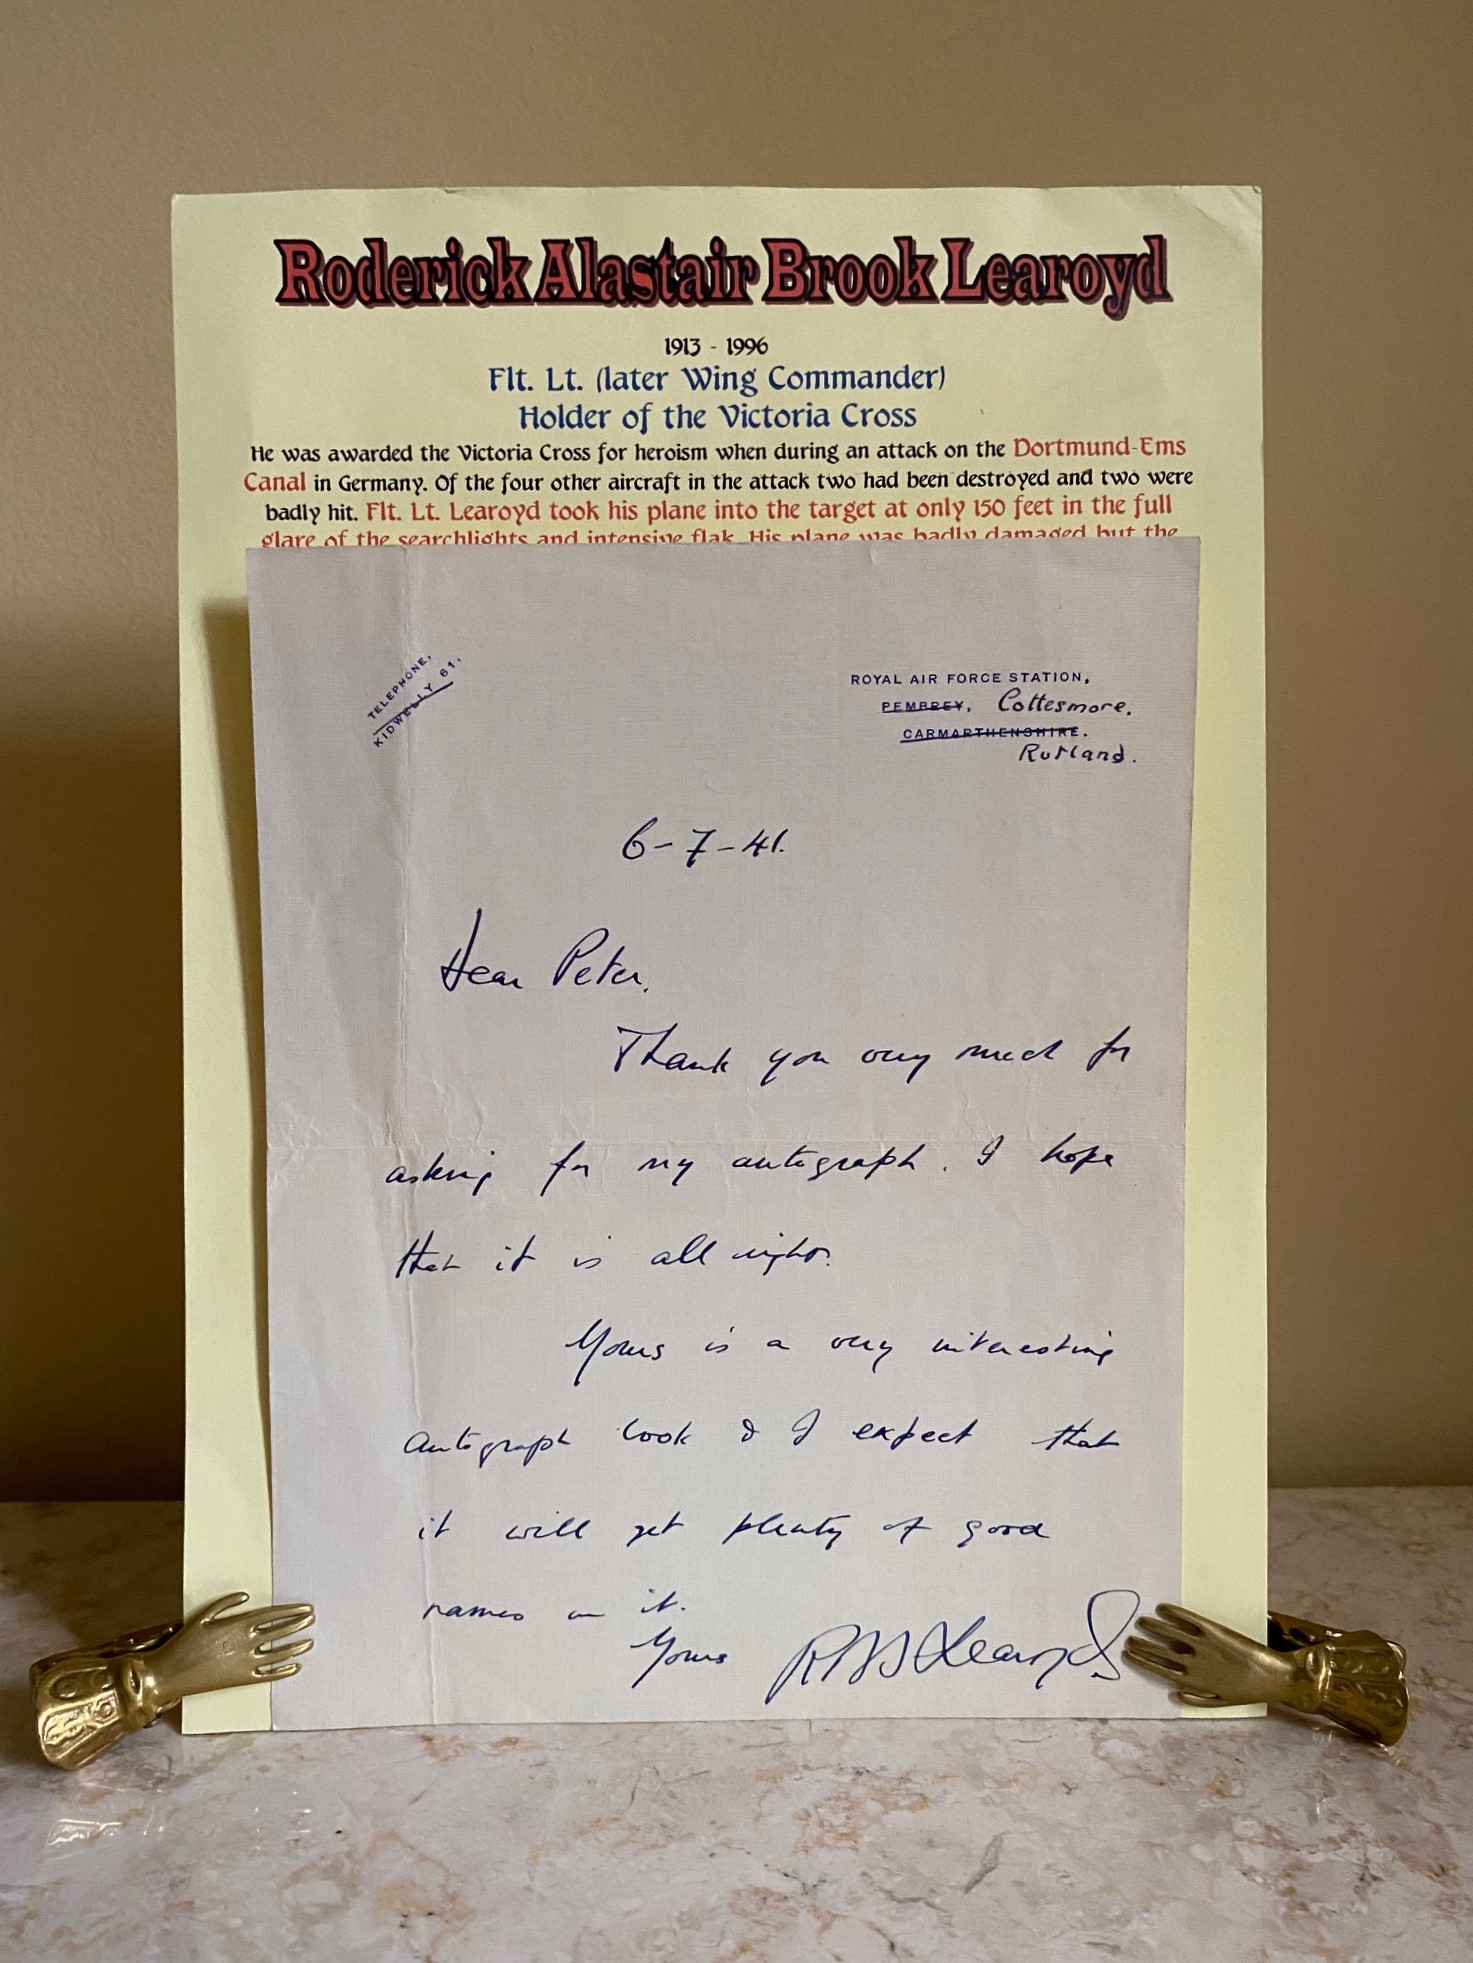 Roderick Alastair Brook Learoyd
1913 - 1996
Flt. Lt. (later Wing Commander)
Holder of the Victoria Cross
He was awarded the Victoria Cross for heroism when during an attack on the Dortmund-Ems
Canal in Germany. Of the four other aircraft in the attack two had been destroyed and two were
badly hit. Flt. Lt. Learoyd took his plane into the target at only 150 feet in the full
glare of the searchlights and intensive flak. His plane was badly damaged but the
TELEPHONE,
KIDWELLY 61.
ROYAL AIR FORCE STATION,
PEMBREY, Cottesmore.
CARMARTHENSHIRE.
Rutland.
6-7-41.
Dear Peter.
Thank you very much for
asking for my autograph. I hope
that it is all right.
Yours is a very interesting
autograph book & I expect that
it will get plenty of good
names in it.
Yours RAB Learoyd